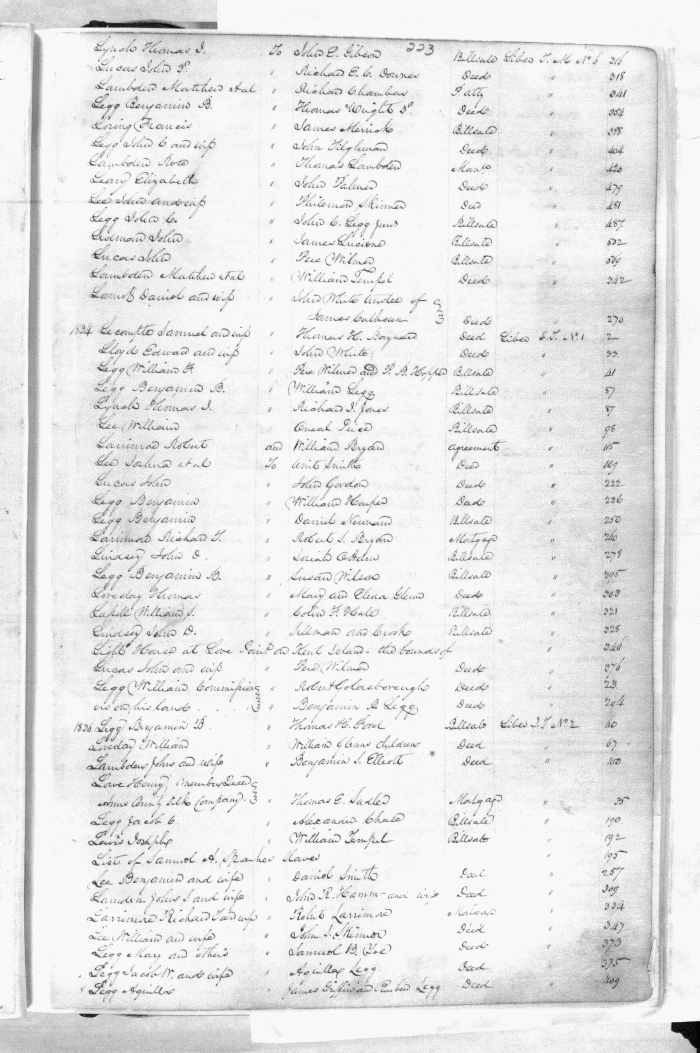 223
Lynch Thomas J. To John C. Gibson Billsale Liber T. M. No 6 316
Lucas John P. " Richard E. C. Downes Deed " 318
Lambden Matthew et al " Richard Chambers " 341
Legg Benjamin B. " Thomas Wright Deed " 354
Loring Francis " James Merrick Billsale " 398
Legg John C and wife " John Tilghman Deed " 404
Lambden " Thomas Lambden " 420
Leary Elizabeth " John Palmer Deed " 479
Lee John and wife " Philemon Skinner Deed " 481
Legg John C. " John C. Legg Junr Billsale " 487
John " James Billsale " 502
Lucas John " Pere Wilmer Billsale " 509
Lambden Matthew et al " William Tempel Deed " 342
Daniel and wife " John White trustee of
James Calhoun Deed " 270
1834 Lecompte Samuel and wife " Thomas H. Baynard Deed Liber J. T. No 1 2
Lloyd Edward and wife " John White Deed " 33
Legg William F. " Pere Wilmer and P. B. Hopper Billsale " 41
Legg Benjamin B. " William Legg Billsale " 57
Lynch Thomas J. " Richard J. Jones Billsale " 87
Lee William " Price Billsale " 98
Larrimore Robert and William Bryan Agreement " 115
Lee Joshua et al To Smith Deed " 169
Lucas John " John Gordon Deed " 222
Legg Benjamin " William Harper Deed " 236
Legg Benjamin " Daniel Newnam Billsale " 250
Larrimore Richard T. " Robert S. Bryan Mortgage " 260
Lindsey John D. " Billsale " 278
Legg Benjamin B. " Susan Wilson Billsale " 295
Loveday Thomas " Mary and Elena Glenn Deed " 303
William S. " Colin F. Hale Billsale " 321
Lindsey John D. " Sillman and Crook Billsale " 328
Light House at Love Point on Kent Island - the bounds of " 346
Lucas John and wife " Pere Wilmer Deed " 376
Legg William, Commissioners " Robert Goldsborough Deed " 23
on his land . . . " Benjamin B Legg Deed " 204
1836 Legg Benjamin B. " Thomas H. Ford Billsale Liber J. T. No 2 60
Loveday William " William Glenns children Deed " 67
Lambden John and wife " Benjamin S. Elliott Deed " 100
Lowe Henry (Member Queen
Anns County Silk Company " Thomas E. Sudler Mortgage " 35
Legg Jacob C. " Alexander Chase Billsale " 190
Lewis Joseph " William Tempel Billsale " 192
List of Samuel A. Sparkes Slaves " 195
Lee Benjamin and wife " Daniel Smith Deed " 257
Lamden John S and wife " John R. Hamm and wife Deed " 309
Larrimore Richard T and wife " Robt Larrimore Mortgage " 334
Lee William and wife " John S. Skinner Deed " 347
Legg Mary and others " Samuel B. Deed " 373
Legg Jacob W. and wife " Aquilla Legg Deed " 375
Legg Aquilla " James Griffin and Reuben Legg Deed " 409